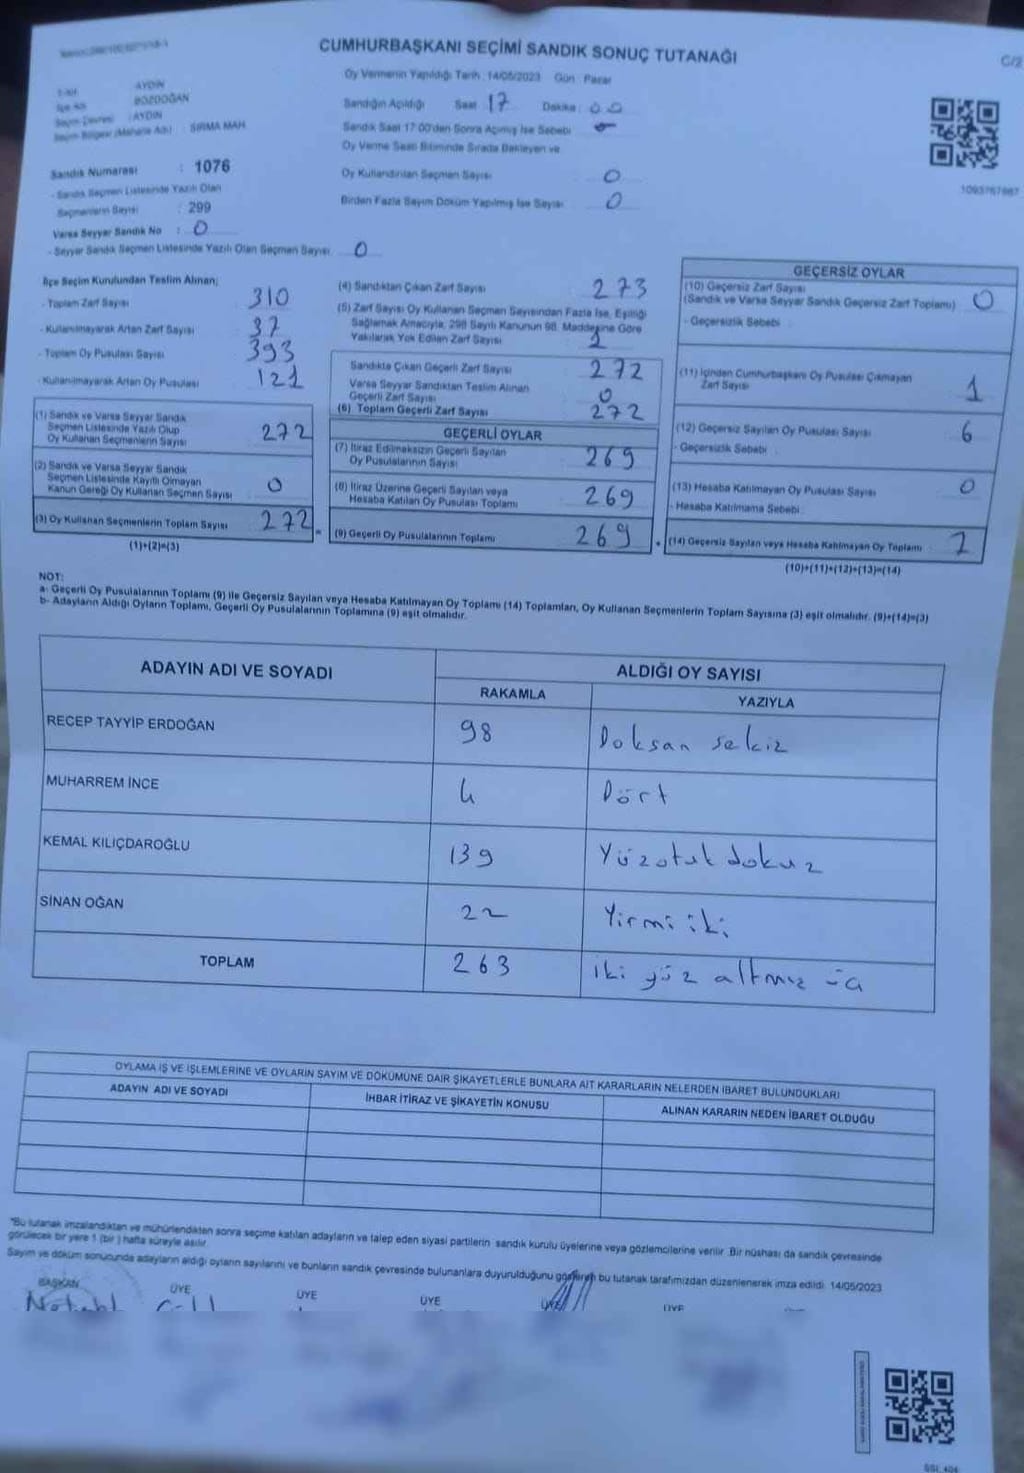 CUMHURBAŞKANI SEÇİMİ SANDIK SONUÇ TUTANAĞI
C/2
Oy Vermenin Yapıldığı Tarih : 14/05/2023 Gün : Pazar
AYDIN
BOZDOĞAN
AYDIN
Seçim Bölgesi (Mahalle Adı) : SIRMA MAH.
Sandığın Açıldığı Saat 17 Dakika : 00
Sandık Saat 17:00'den Sonra Açılmış İse Sebebi -
Oy Verme Saati Bitiminde Sırada Bekleyen ve
Oy Kullandırılan Seçmen Sayısı 0
Birden Fazla Sayım Döküm Yapılmış İse Sayısı 0
1093767887
Sandık Numarası : 1076
- Sandık Seçmen Listesinde Yazılı Olan
Seçmenlerin Sayısı : 299
Varsa Seyyar Sandık No : 0
- Seyyar Sandık Seçmen Listesinde Yazılı Olan Seçmen Sayısı 0
İlçe Seçim Kurulundan Teslim Alınan;
- Toplam Zarf Sayısı 310
- Kullanılmayarak Artan Zarf Sayısı 37
- Toplam Oy Pusulası Sayısı 393
- Kullanılmayarak Artan Oy Pusulası 121
(1) Sandık ve Varsa Seyyar Sandık
Seçmen Listesinde Yazılı Olup
Oy Kullanan Seçmenlerin Sayısı 272
(2) Sandık ve Varsa Seyyar Sandık
Seçmen Listesinde Kayıtlı Olmayan
Kanun Gereği Oy Kullanan Seçmen Sayısı 0
(3) Oy Kullanan Seçmenlerin Toplam Sayısı 272
(1)+(2)=(3)
(4) Sandıktan Çıkan Zarf Sayısı 273
(5) Zarf Sayısı Oy Kullanan Seçmen Sayısından Fazla İse, Eşitliği
Sağlamak Amacıyla, 298 Sayılı Kanunun 98. Maddesine Göre
Yakılarak Yok Edilen Zarf Sayısı 1
Sandıkta Çıkan Geçerli Zarf Sayısı 272
Varsa Seyyar Sandıktan Teslim Alınan
Geçerli Zarf Sayısı 0
(6) Toplam Geçerli Zarf Sayısı 272
GEÇERLİ OYLAR
(7) İtiraz Edilmeksizin Geçerli Sayılan
Oy Pusulalarının Sayısı 269
(8) İtiraz Üzerine Geçerli Sayılan veya
Hesaba Katılan Oy Pusulası Toplamı 269
(9) Geçerli Oy Pusulalarının Toplamı 269
GEÇERSİZ OYLAR
(10) Geçersiz Zarf Sayısı
(Sandık ve Varsa Seyyar Sandık Geçersiz Zarf Toplamı) 0
- Geçersizlik Sebebi :
(11) İçinden Cumhurbaşkanı Oy Pusulası Çıkmayan
Zarf Sayısı 1
(12) Geçersiz Sayılan Oy Pusulası Sayısı 6
- Geçersizlik Sebebi :
(13) Hesaba Katılmayan Oy Pusulası Sayısı 0
- Hesaba Katılmama Sebebi :
(14) Geçersiz Sayılan veya Hesaba Katılmayan Oy Toplamı :
(10)+(11)+(12)+(13)=(14)
NOT:
a- Geçerli Oy Pusulalarının Toplamı (9) ile Geçersiz Sayılan veya Hesaba Katılmayan Oy Toplamı (14) Toplamları, Oy Kullanan Seçmenlerin Toplam Sayısına (3) eşit olmalıdır. (9)+(14)=(3)
b- Adayların Aldığı Oyların Toplamı, Geçerli Oy Pusulalarının Toplamına (9) eşit olmalıdır.
ADAYIN ADI VE SOYADI
ALDIĞI OY SAYISI
RAKAMLA YAZIYLA
RECEP TAYYİP ERDOĞAN 98 Doksan sekiz
MUHARREM İNCE 4 Dört
KEMAL KILIÇDAROĞLU 139 Yüzotuz dokuz
SİNAN OĞAN 22 Yirmi iki
TOPLAM 263 iki yüz altmız üç
OYLAMA İŞ VE İŞLEMLERİNE VE OYLARIN SAYIM VE DÖKÜMÜNE DAİR ŞİKAYETLERLE BUNLARA AİT KARARLARIN NELERDEN İBARET BULUNDUKLARI
ADAYIN ADI VE SOYADI
İHBAR İTİRAZ VE ŞİKAYETİN KONUSU
ALINAN KARARIN NEDEN İBARET OLDUĞU
"Bu tutanak imzalandıktan ve mühürlendikten sonra seçime katılan adayların ve talep eden siyasi partilerin sandık kurulu üyelerine veya gözlemcilerine verilir. Bir nüshası da sandık çevresinde
görülecek bir yere 1 (bir) hafta süreyle asılır.
Sayım ve döküm sonucunda adayların aldığı oyların sayılarını ve bunların sandık çevresinde bulunanlara duyurulduğunu gösteren bu tutanak tarafımızdan düzenlenerek imza edildi. 14/05/2023
BAŞKAN ÜYE ÜYE ÜYE ÜYE ÜYE